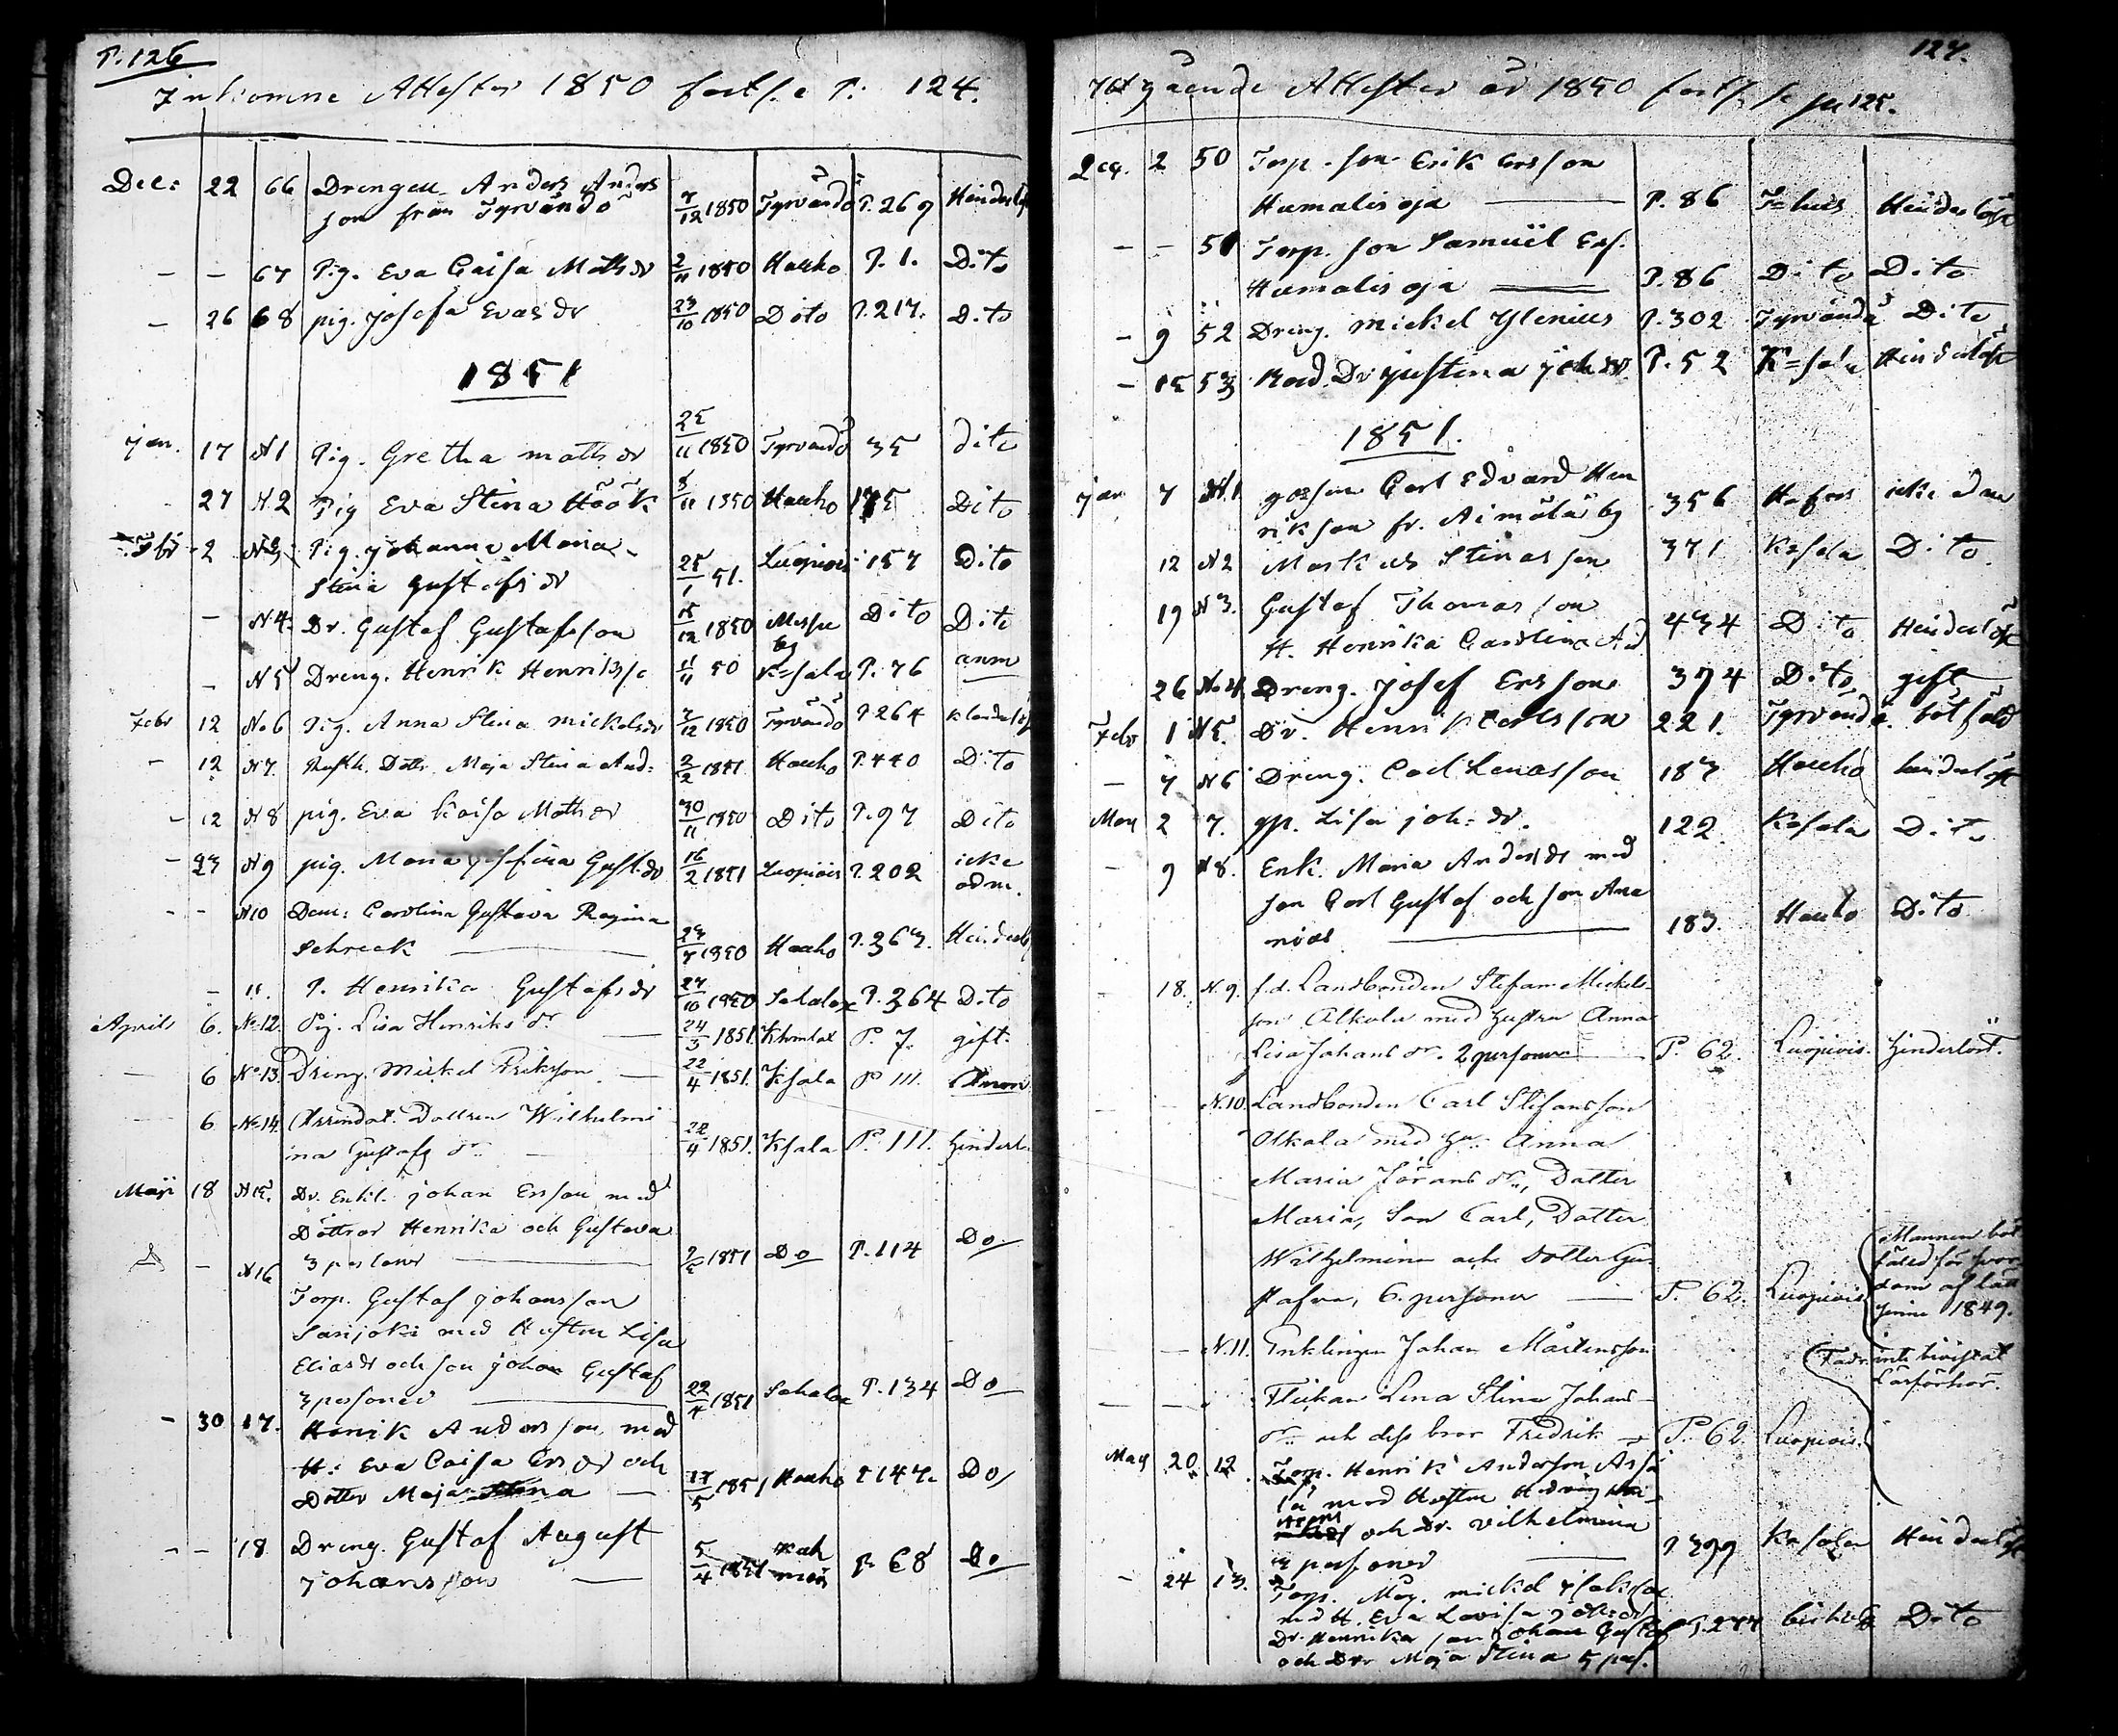 P. 126
Inkomne Attester 1850 forts. se P. 124.
Dec: 22 66 Drengen Anders Anders
son från Tyrvändö 7/12 1850 Tyrvändö P. 269 Hinderlös
– – 67 Pig. Eva Caisa Matts dr 2/11 1850 Hauho P. 1. Dito
– 26 68 pig. Josefa Evas dr 23/10 1850 Dito P. 217. Dito
1851
Jan. 17 N 1 Pig. Gretha Matts dr 25/11 1850 Tyrvändö 35 dito
27 N. 2 Pig Eva Stina Höök 8/11 1850 Hauho 175 Dito
Febr 2 N 3 Pig. Johanna Maria
Stina Gustafs dr 25/1 51. Luopiois 157 Dito
– N 4. Dr. Gustaf Gustafsson 15/12 1850 Messu
by Dito Dito
– N 5 Dreng. Henrik Henriks so 11/11 50 K=sala P. 76 anm
Febr 12 No 6 Pig. Anna Stina Mickelsdr 7/12 1850 Tyrvändö P 264 Hinderlös
– 12 N 7. Rusth. Dottr. Maja Stina And: 2/2 1851 Hauho P. 440 Dito
– 12 N 8 pig. Eva Kaisa Matts dr 30/11 1850 Dito P. 97 Dito
– 23 N 9 pig. Maria Josefina Gust. dr 16/2 1851 Luopiois P. 202 icke
adm.
– – N 10 Dem: Carolina Gustava Regina
Schreck 23/7 1850 Hauho P. 363. Hinderl
– 11. P. Henrika Gustafs dr 27/10 1850 Sahalax P. 364 Dito
Aprils 6. No 12. Pig. Lisa Henriks dr. 24/3 1851. Khmlax P. 7. gift.
– 6 No 13. Dreng. Mickel Eriksson 22/4 1851. Ksala P. 111. Anm
– 6 No 14. Arrendat. Dottren Wilhelmi
ina Gustafs dr. 22/4 1851. Ksala P. 111. hinderl.
Maji 18 N 15. Dr. Enkl. Johan Ersson med
Döttrar Henrika och Gustava
3 personer 2/5 1851 Do P. 114 Do
– N 16
Torp. Gustaf Johansson
Sarijoki med Hustru Lisa
Elias dr och son Johan Gustaf
3 personer 22/4 1851 Sahalax P. 134 Do
– 30 17. Henrik Andersson med
H: Eva Caisa Ers dr och
Dotter Maja Stina 17/5 1851 Hauho P 147. Do
– – 18 Dreng. Gustaf August
Johansson 5/4 1851 P. 68 Do
127.
Utgående Attester år 1850 forts. se pag 125.
Dec. 2 50 Torp. son Erik Ersson
Humalisoja P. 86 Hinderlöst
– – 51 Torp. son Samuel Ers.
Humalisoja P. 86 Dito Dito
– 9 52 Dreng. Mickel Ylenius P. 302 Tyrvändö Dito
– 15 53 Dr Justina Joh dr. P. 52 K=sala Hinderlöst
1851.
Jan 7 N. 1 gossen Carl Edvard Hen
riksson fr. Aimälä by 356 icke adm
12 N 2 Markus Stinasson 371 K=sala Dito
19 N 3. Gustaf Thomasson
H. Henrika Carolina And 434 Dito Hinderlöst
26 No 4. Dreng. Josef Ersson 374 Dito gift
Febr 1 N 5. Dr. Henrik Carlsson 221. Tyrvändö. bötfäld
– 7 N 6 Dreng. Carl Lenasson 187 Hauho hinderlöst
Mars 2 7. gp. Lisa Joh: dr. 122 K=sala Dito
– 9 N 8. Enk. Maria Anders dr med
son Carl Gustaf och son Ana
nias 183. Hauho Dito
– 18. N. 9. f.d. Landbonden Stefan Mickels-
son Alkula med hustru Anna
Lisa Johans dr. 2 personer P. 62. Luopiois. hinderlöst.
N. 10. Landbonden Carl Stefansson
Olkala med hu: Anna
Maria Jörans dr., Dotter
Maria, Son Carl, Dotter
Wilhelmina och Dotter Gu-
stafva, 6. personer P. 62. Luopiois
Mannen böt
fäld för hor
dom
1849.
– N. 11. Enklingen Johan Mårtensson
inte bevistat
läsförhör.
– – Flickan Lena Stina Johans-
dr. och dess bror Fredrik P. 62 Luopiois.
Maij 20. 12. Torp. Henrik Andersson
med Hustru Hedvig
och dr. Vilhelmina
3 personer P 399 K=sala Hinderlöst
– 24 13. Torp. Måg. Mickel Isaksson
med H. Eva Lovisa
Dr. Henrika son Johan Gustaf P. 277 Dito
och Dr. Maja Stina 5 pers.